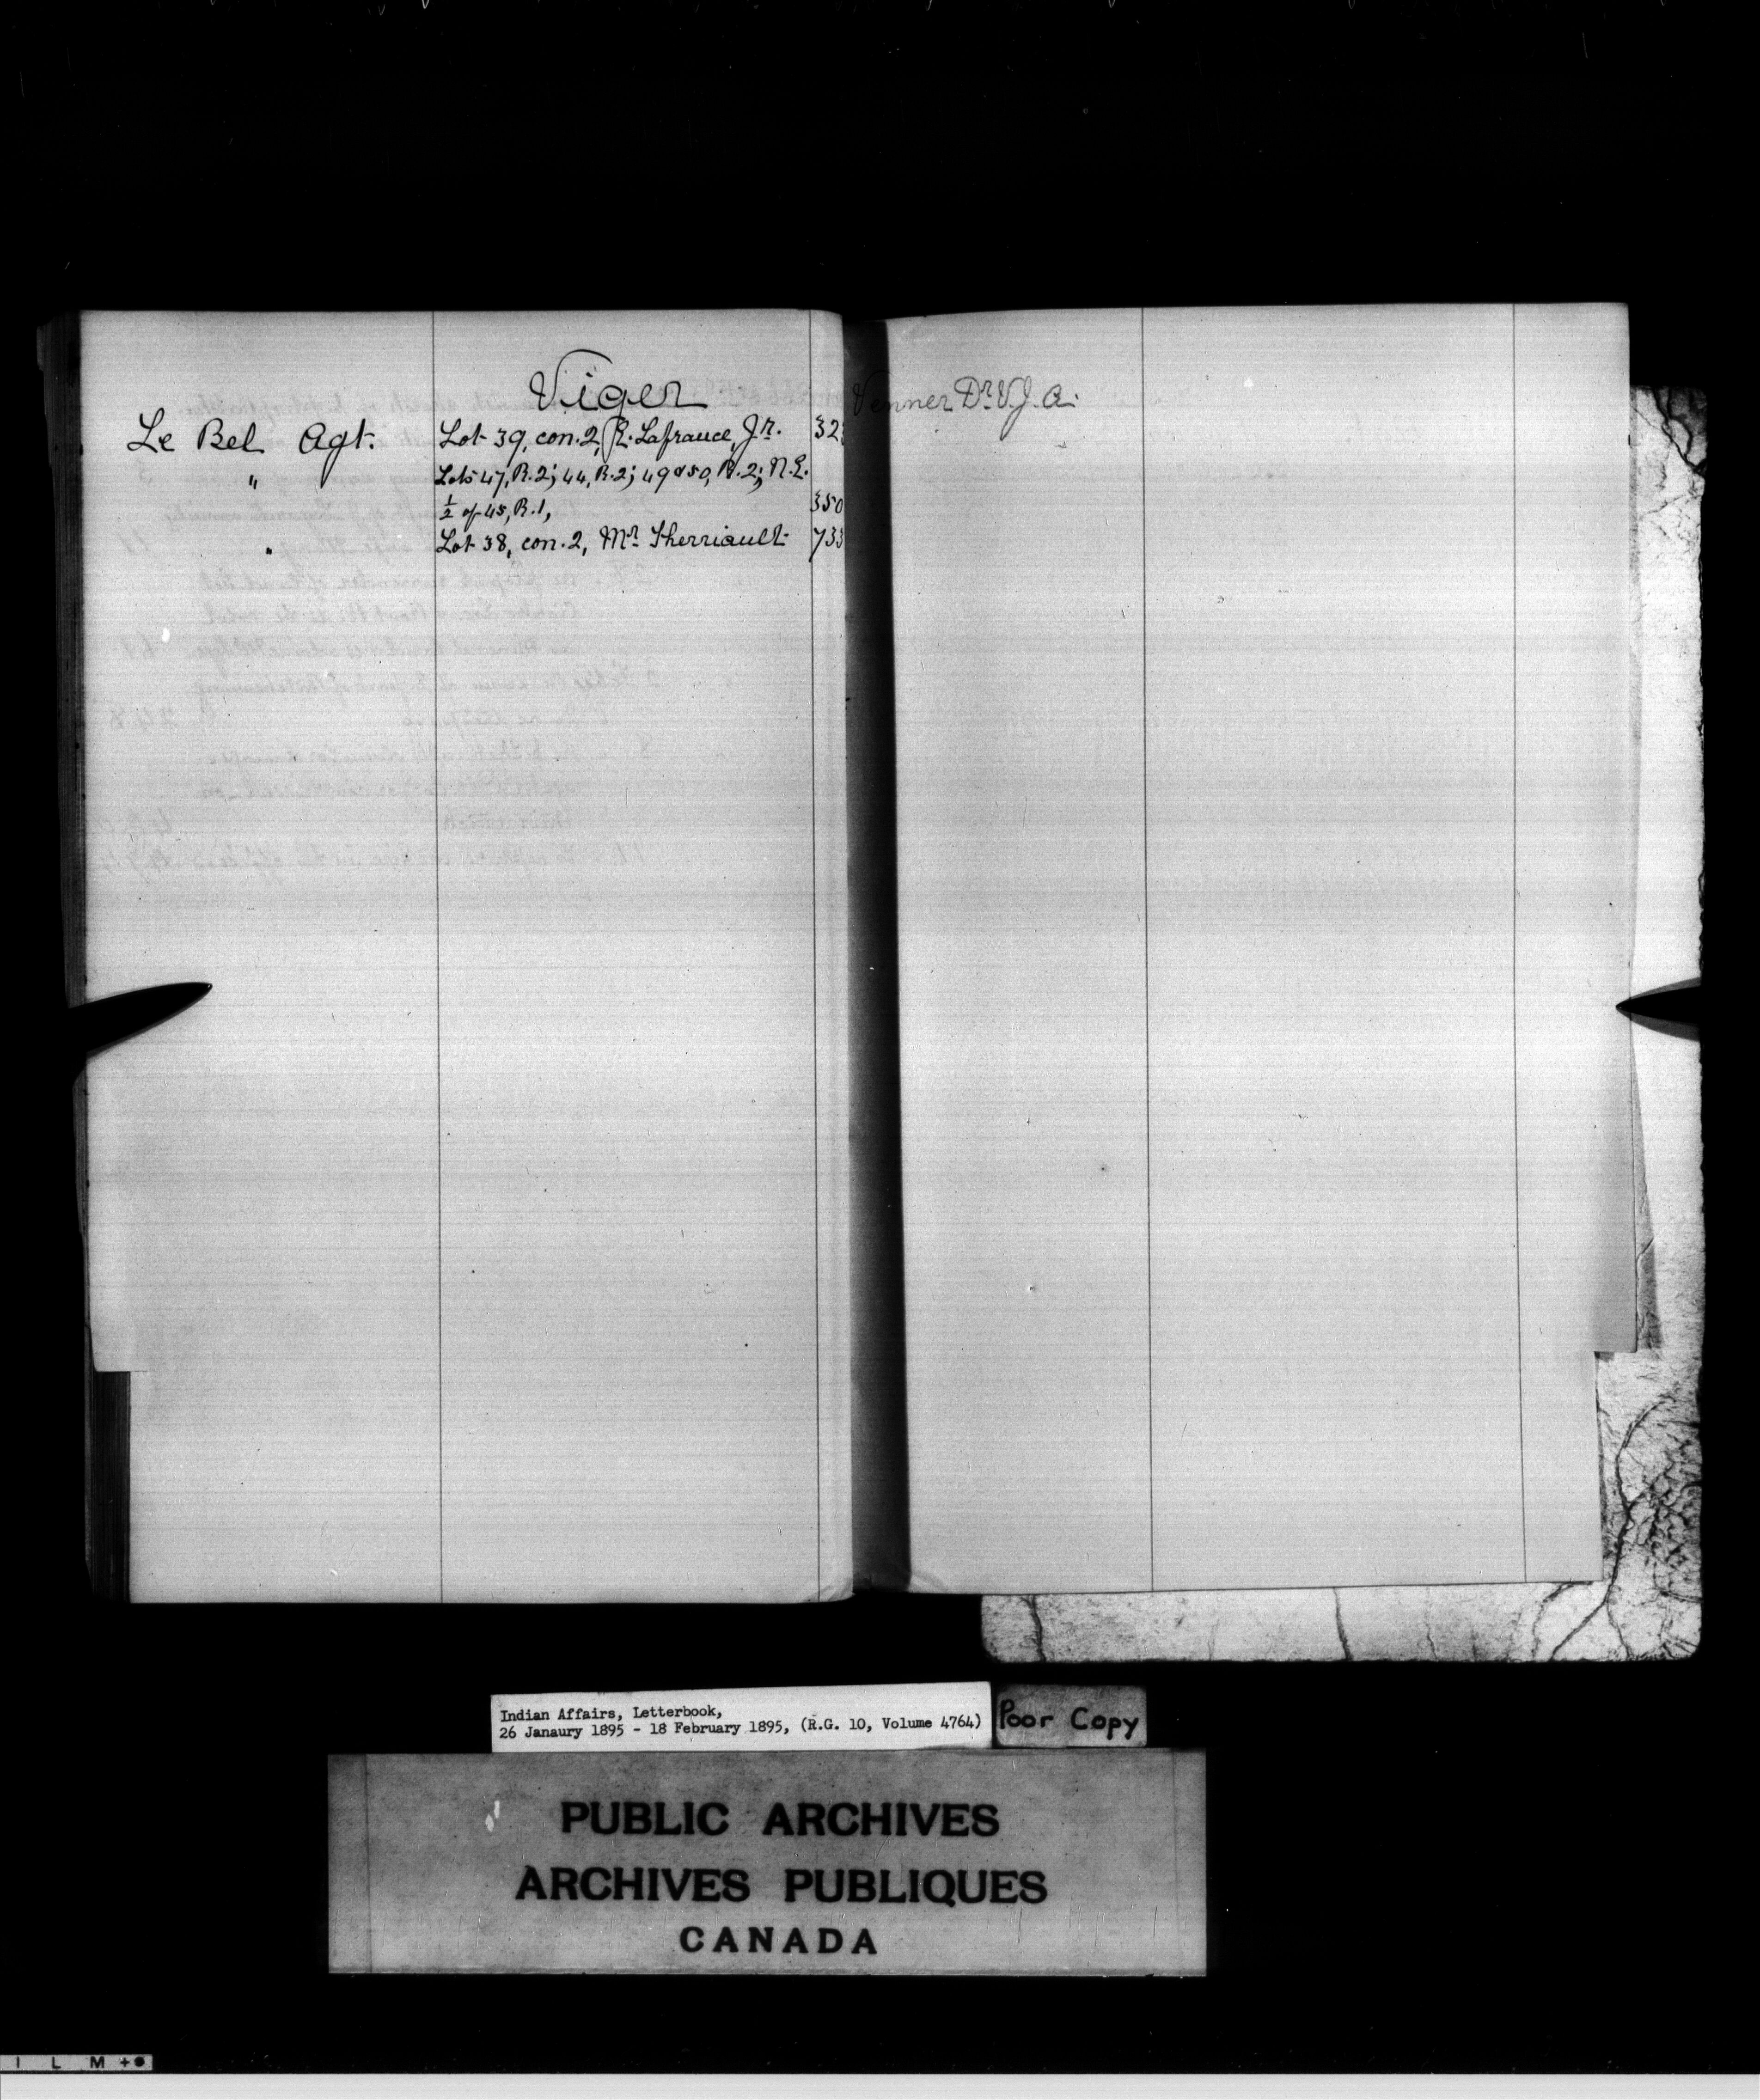 Viger
Le Bel Agt. Lot 39, con. 2, R. Lafrance, Jr. 323
" Lots 47, R. 2; 44, R. 2; 49 & 50, R. 2; N.E.
½ of 45, R. 1, 350
" Lot 38, con. 2, Mr Therriault 733
Venner Dr V. J. A.
Indian Affairs, Letterbook,
26 Janaury 1895 - 18 February 1895, (R.G. 10, Volume 4764)
Poor Copy
PUBLIC ARCHIVES
ARCHIVES PUBLIQUES
CANADA
I L M +